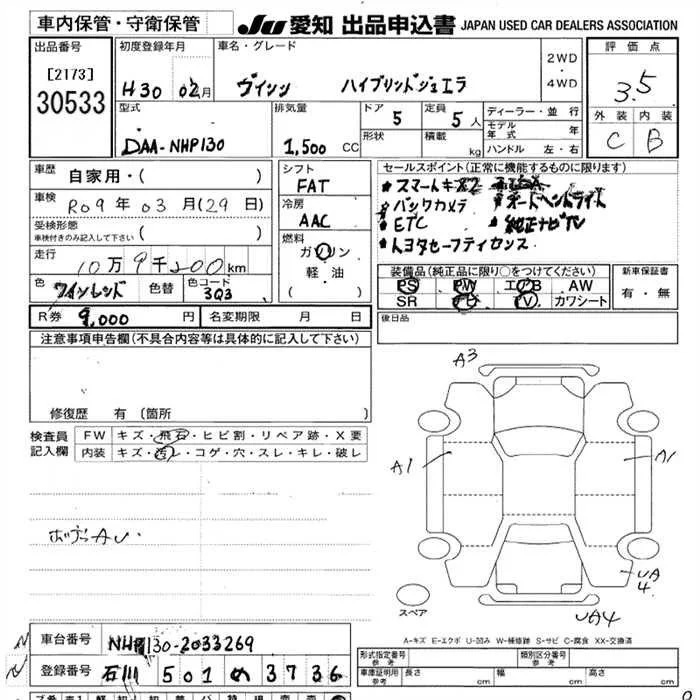 車内保管・守衛保管
JU 愛知 出品申込書 JAPAN USED CAR DEALERS ASSOCIATION
出品番号
[2173]
30533
初度登録年月
H30 02月
車名・グレード
ヴィッツ ハイブリッドジュエラ
2WD
・
4WD
評価点
3.5
外装 内装
C B
型式
DAA-NHP130
排気量
1,500 CC
ドア
5
定員
5人
形状
積載
kg
ディーラー・並行
モデル年式 年
ハンドル 左・右
車歴
自家用・( )
車検
R09年 03月(29日)
受検形態
車検付きのみ記入して下さい ( )
走行
10万9千200km
色
ワインレッド
色替
色コード
3Q3
シフト
FAT
冷房
AAC
燃料
ガソリン
軽・油
( )
セールスポイント(正常に機能するものに限ります)
★スマートキー×2
★オートヘッドライト
★バックカメラ
★ETC
★純正ナビTV
★トヨタセーフティセンス
装備品(純正品に限り○をつけてください)
PS PW エアB AW
SR ナビ TV カワシート
新車保証書
有・無
R券 9,000 円
名変期限 月 日
後日品
注意事項申告欄(不具合内容等は具体的に記入して下さい)
修復歴 有 (箇所 )
検査員記入欄
FW キズ・飛石・ヒビ割・リペア跡・X要
内装 キズ・汚レ・コゲ・穴・スレ・キレ・破レ
ボデーAU
A3
A1
A1
UA4
UA4
スペア
A-キズ E-エクボ U-凹み W-補修跡 S-サビ C-腐食 XX-交換済
車台番号 NHP130-2033269
登録番号 石川 501 め 3736
形式指定番号 参考
類別区分番号 参考
車庫証明用 参考
長さ cm
幅 cm
高さ cm